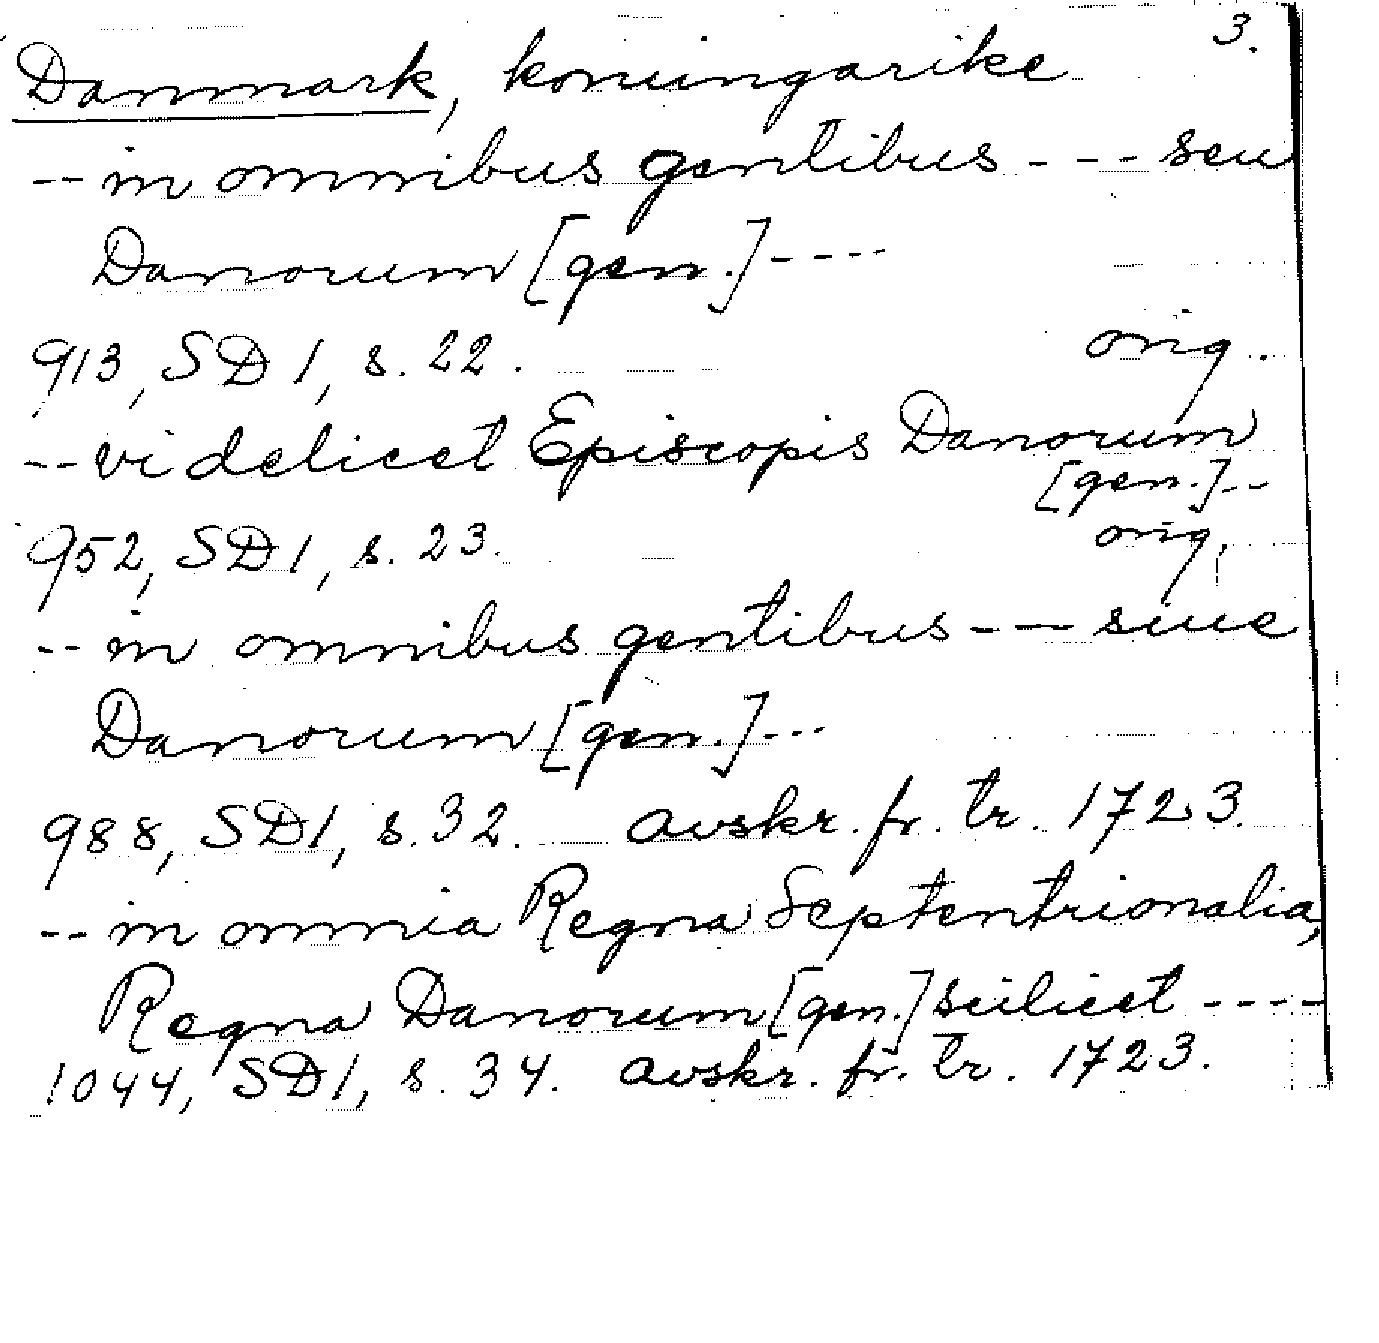 3.
Danmark, konungarike
-- in omnibus gentibus --- seu
Danorum [gen.] ----
913, SD 1, s. 22. orig.
-- videlicet Episcopis Danorum
[gen.] --
952, SD 1, s. 23. orig.
-- in omnibus gentibus --- siue
Danorum [gen.] ---
988, SD 1, s. 32. avskr. fr. tr. 1723.
-- in omnia Regna Septentrionalia,
Regna Danorum [gen.] scilicet ----
1044, SD 1, s. 34. avskr. fr. tr. 1723.